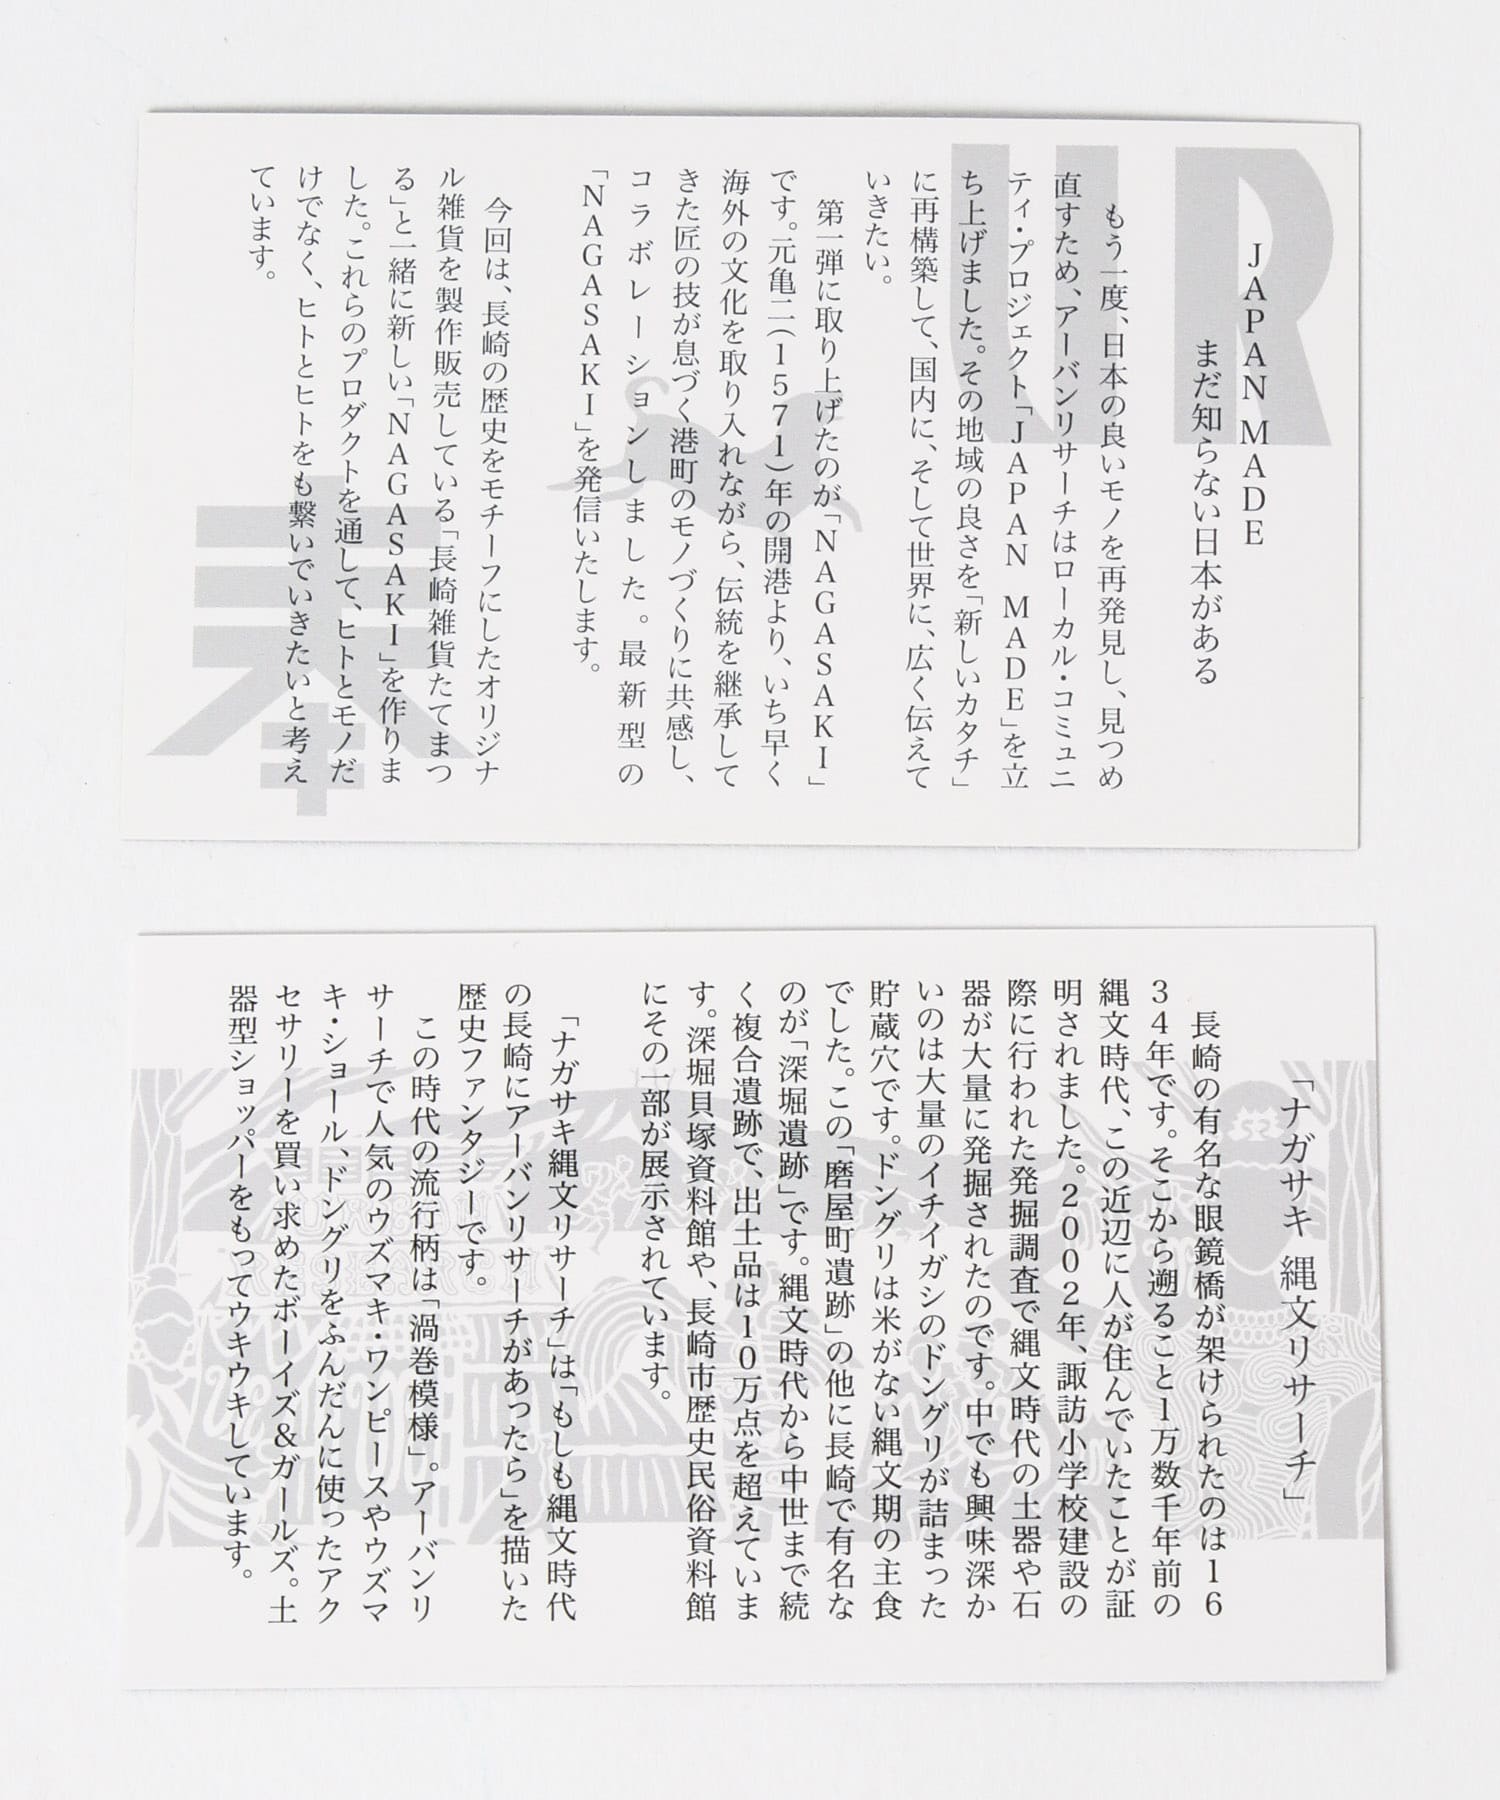 UR
日本
JAPAN MADE
まだ知らない日本がある
もう一度、日本の良いモノを再発見し、見つめ
直すため、アーバンリサーチはローカル・コミュニ
ティ・プロジェクト「JAPAN MADE」を立
ち上げました。その地域の良さを「新しいカタチ」
に再構築して、国内に、そして世界に、広く伝えて
いきたい。
第一弾に取り上げたのが「NAGASAKI」
です。元亀二(1571)年の開港より、いち早く
海外の文化を取り入れながら、伝統を継承して
きた匠の技が息づく港町のモノづくりに共感し、
コラボレーションしました。最新型の
「NAGASAKI」を発信いたします。
今回は、長崎の歴史をモチーフにしたオリジナ
ル雑貨を製作販売している「長崎雑貨たてまつ
る」と一緒に新しい「NAGASAKI」を作りま
した。これらのプロダクトを通して、ヒトとモノだ
けでなく、ヒトとヒトをも繋いでいきたいと考え
ています。
「ナガサキ 縄文リサーチ」
長崎の有名な眼鏡橋が架けられたのは16
34年です。そこから遡ること1万数千年前の
縄文時代、この近辺に人が住んでいたことが証
明されました。2002年、諏訪小学校建設の
際に行われた発掘調査で縄文時代の土器や石
器が大量に発掘されたのです。中でも興味深か
いのは大量のイチイガシのドングリが詰まった
貯蔵穴です。ドングリは米がない縄文期の主食
でした。この「磨屋町遺跡」の他に長崎で有名な
のが「深堀遺跡」です。縄文時代から中世まで続
く複合遺跡で、出土品は10万点を超えていま
す。深堀貝塚資料館や、長崎市歴史民俗資料館
にその一部が展示されています。
「ナガサキ縄文リサーチ」は「もしも縄文時代
の長崎にアーバンリサーチがあったら」を描いた
歴史ファンタジーです。
この時代の流行柄は「渦巻模様」。アーバンリ
サーチで人気のウズマキ・ワンピースやウズマ
キ・ショール、ドングリをふんだんに使ったアク
セサリーを買い求めたボーイズ&ガールズ。土
器型ショッパーをもってウキウキしています。